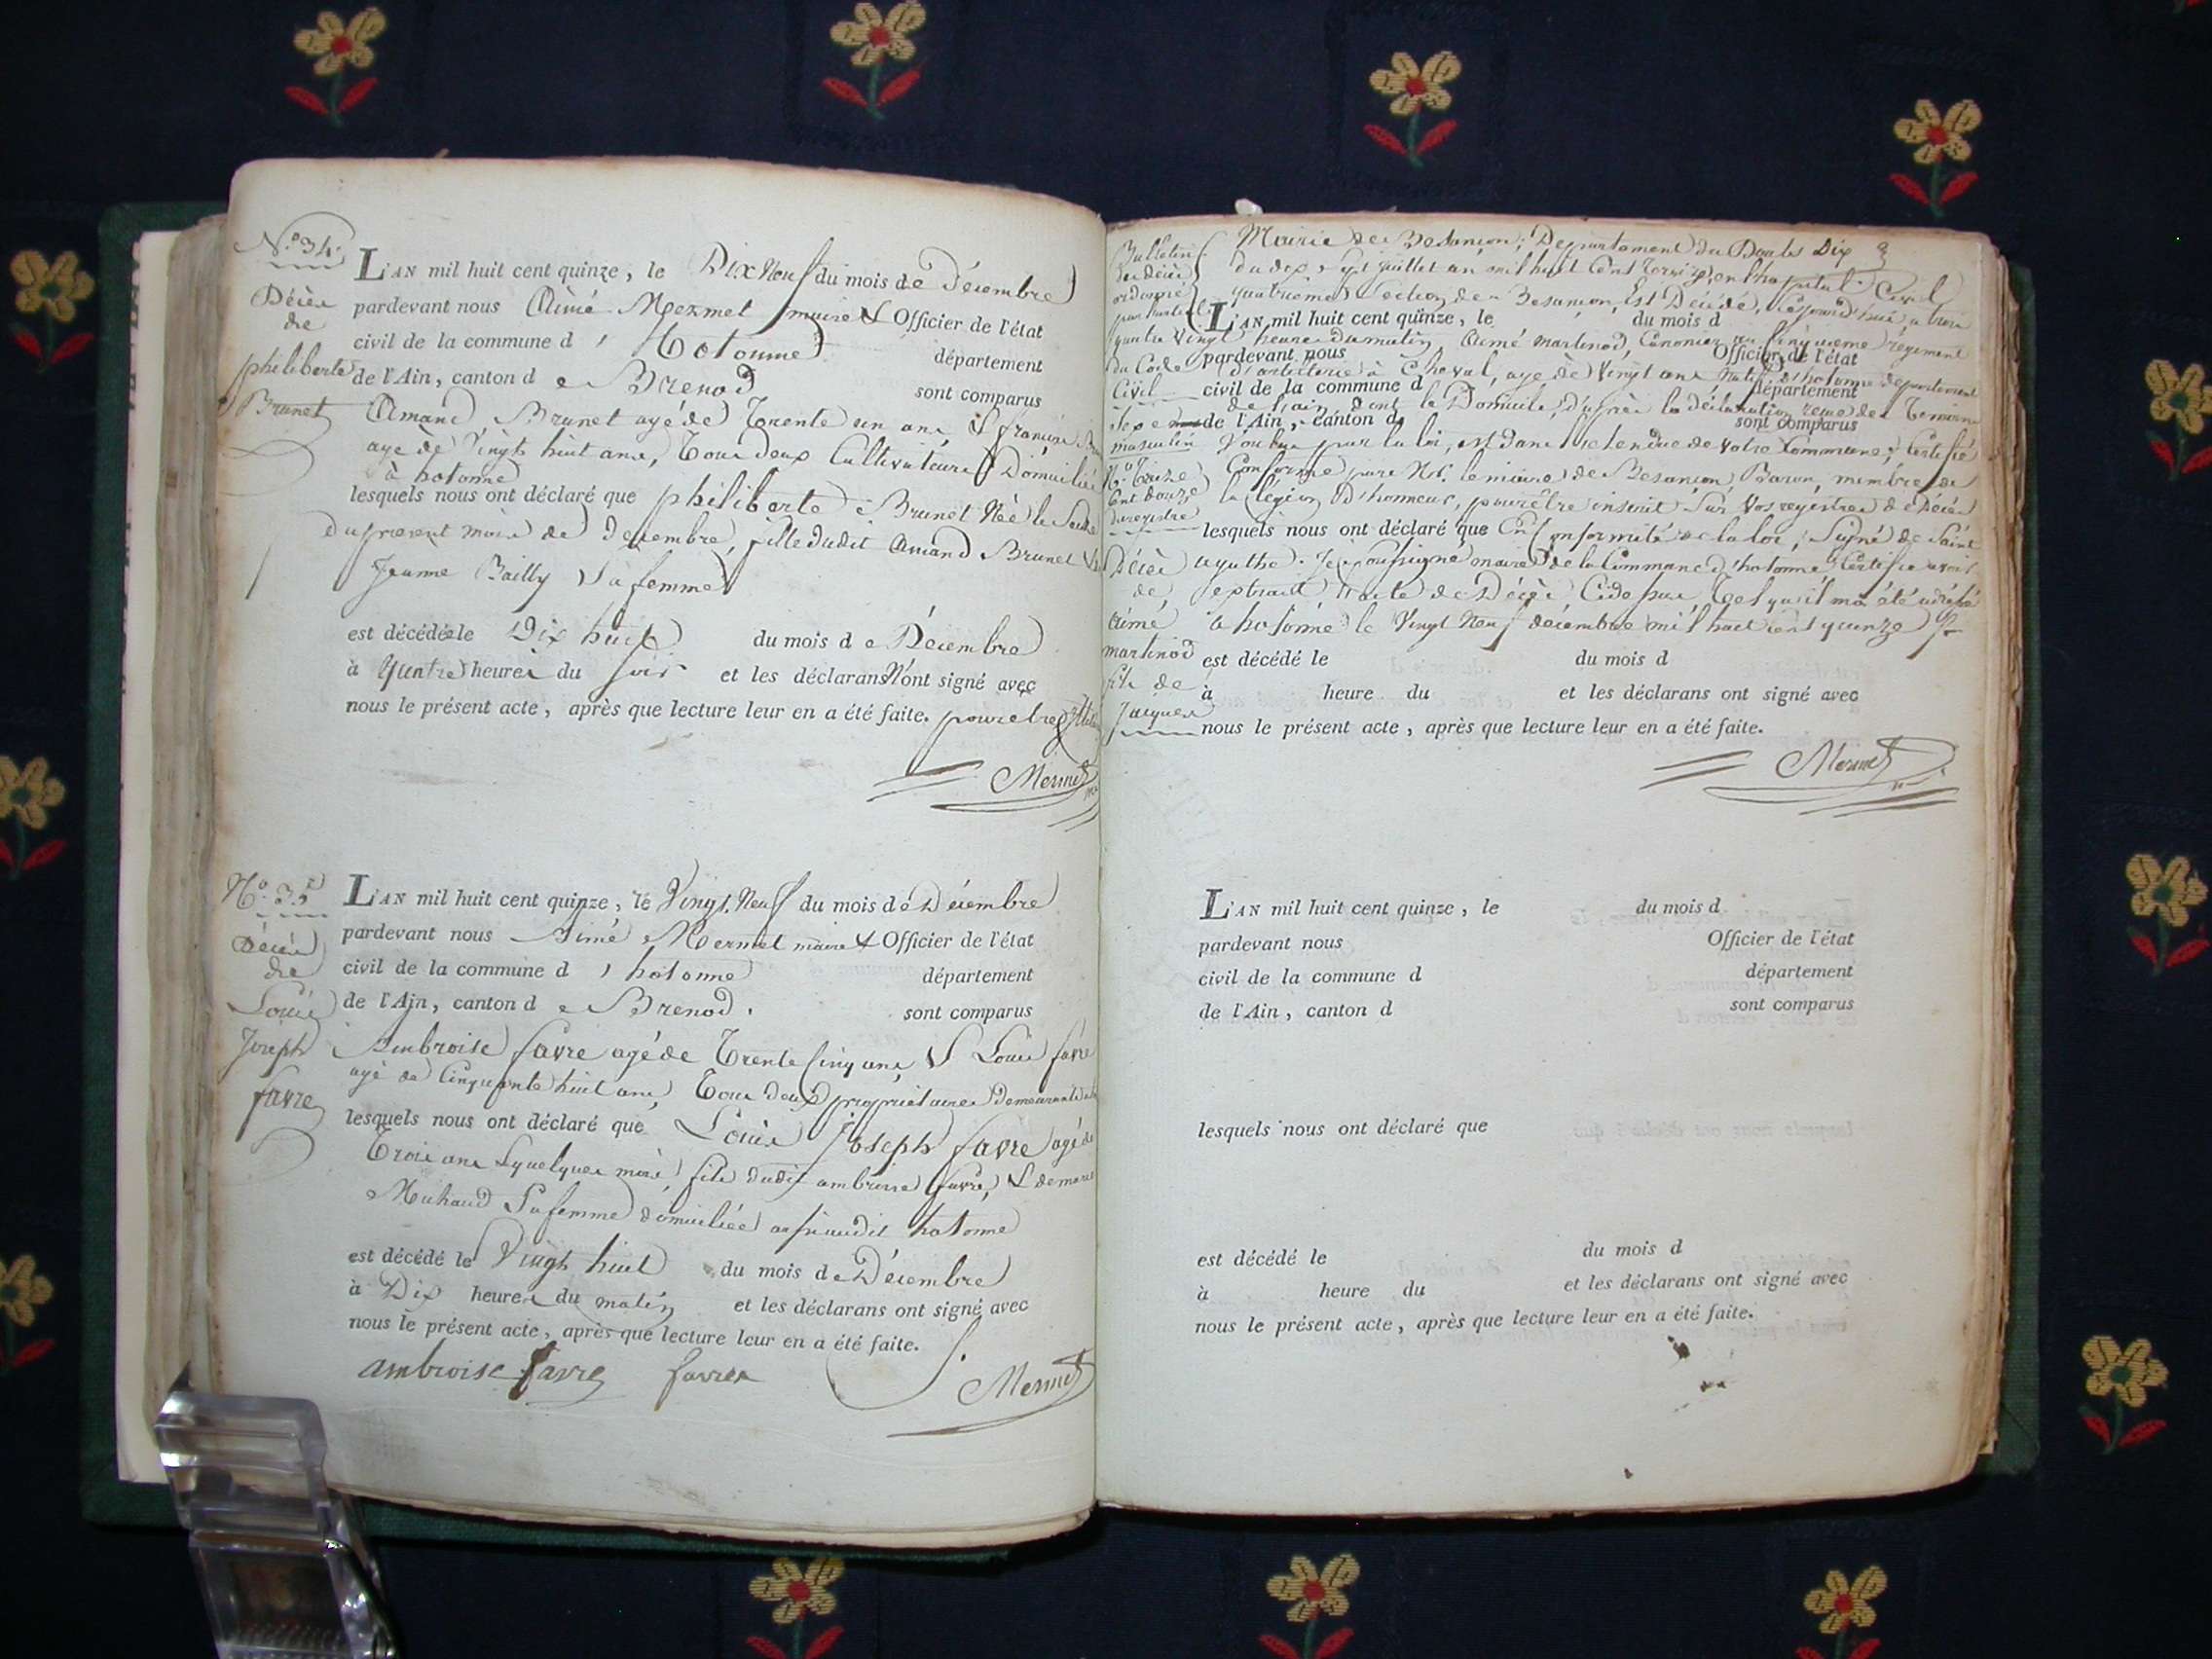 N.o 34.
Décès
de
philiberte
Brunet
L'AN mil huit cent quinze, le Dix Neuf du mois de Décembre
pardevant nous Aimé Mermet maire & Officier de l'état
civil de la commune d ' hotonne département
de l'Ain, canton d e Brenod sont comparus
Amand Brunet agé de Trente un ans & françois
agé de Vingt huit ans, Tous deux Cultivateurs Domiciliés
à hotonne
lesquels nous ont déclaré que philiberte Brunet Née le
du présent mois de Décembre, fille dudit Amand Brunet &
Jeanne Bailly Sa femme
est décédée le Dix huit du mois d e Décembre
à quatre heures du soir et les déclarans N'ont signé avec
nous le présent acte, après que lecture leur en a été faite. pour être
Mermet
N.o 35
Décès
de
Louis
Joseph
favre
L'AN mil huit cent quinze, le Vingt Neuf du mois de Décembre
pardevant nous Aimé Mermet maire & Officier de l'état
civil de la commune d ' hotonne département
de l'Ain, canton d e Brenod. sont comparus
Ambroise favre agé de Trente Cinq ans, & Louis favre
agé de Cinquante huit ans, Tous deux propriétaires Demeurants
lesquels nous ont déclaré que Louis Joseph favre agé de
Trois ans & quelques mois, fils dudit ambroise favre, & de marie
Michaud Sa femme domiciliée audit hotonne
est décédé le Vingt huit du mois de Décembre
à Dix heures du matin et les déclarans ont signé avec
nous le présent acte, après que lecture leur en a été faite.
ambroise favre favre Mermet
Bulletin
de décès
ordonné
par l'article
quatre Vingt
du Code
Civil
Sexe
masculin
N.o Treize
Cent douze
du registre
Décès
de
Aimé
martinod
fils de
Jacques
Mairie de Besançon; Département du Doubs Dix
du dix sept juillet an mil huit Cent Treize, en l'hopital Civil
quatrième Section de Besançon, Est Décédé, Cejourd'hui, a trois
L'AN mil huit cent quinze, le du mois d
heures du matin, Aimé martinod, Canonier au Cinquième régiment
pardevant nous Officier de l'état
d'artillerie à Cheval, agé de Vingt ans Natif d'hotonne département
civil de la commune d département
de l'ain dont le Domicile, d'après la déclaration reçue des Temoins
de l'Ain, canton d sont comparus
Voulus par la loi, est dans l'étendue de Votre Commune; Certifié
Conforme par Nous le maire de Besançon, Baron, membre de
la légion d'honneur, pour être inscrit Sur Vos registres de Décès
lesquels nous ont déclaré que En Conformité de la loi, Signé de Saint
agathe. Je Soussigné maire de la Commune d'hotonne Certifie avoir
extrait l'acte de Décès Cidessus Tel qu'il m'a été adressé
a hotonne le Vingt Neuf décembre mil huit cent quinze
est décédé le du mois d
à heure du et les déclarans ont signé avec
nous le présent acte, après que lecture leur en a été faite.
Mermet
L'AN mil huit cent quinze, le du mois d
pardevant nous Officier de l'état
civil de la commune d département
de l'Ain, canton d sont comparus
lesquels nous ont déclaré que
est décédé le du mois d
à heure du et les déclarans ont signé avec
nous le présent acte, après que lecture leur en a été faite.